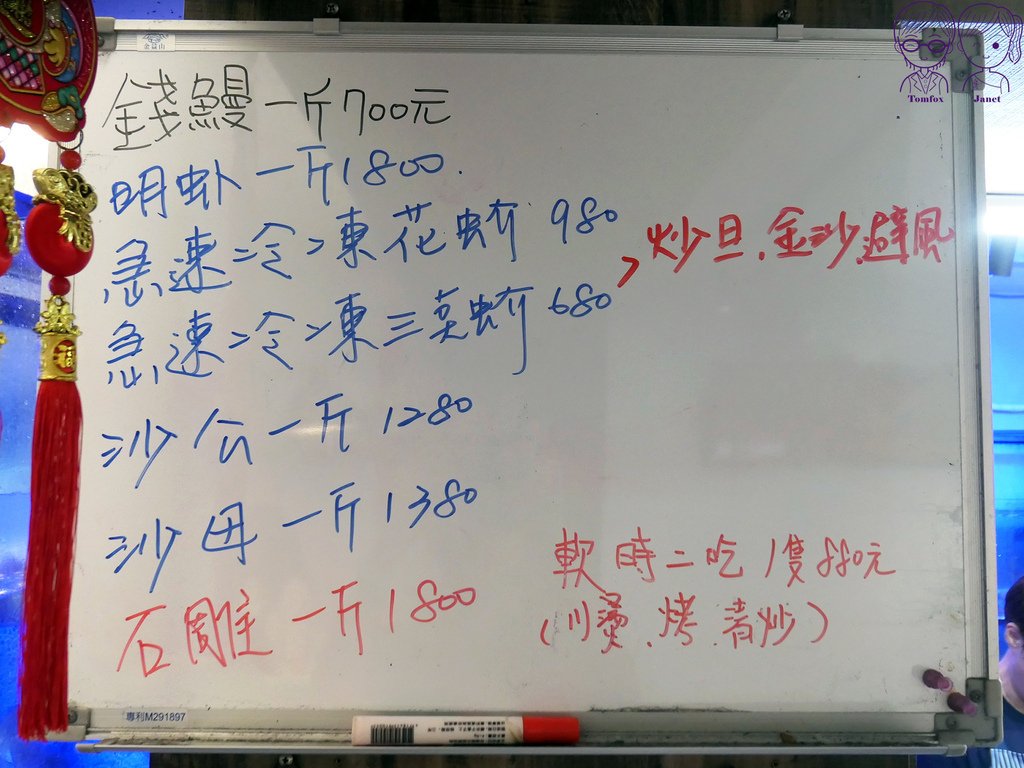 Tomfox Janet
金益山
錢鰻一斤700元
明虾一斤1800.
急速冷凍花蚧 980
急速冷凍三点蚧 680
炒旦.金沙.避風
沙公一斤 1280
沙母一斤 1380
石雕一斤 1800
軟時二吃 1隻880元
(川燙.烤.清炒)
專利M291897